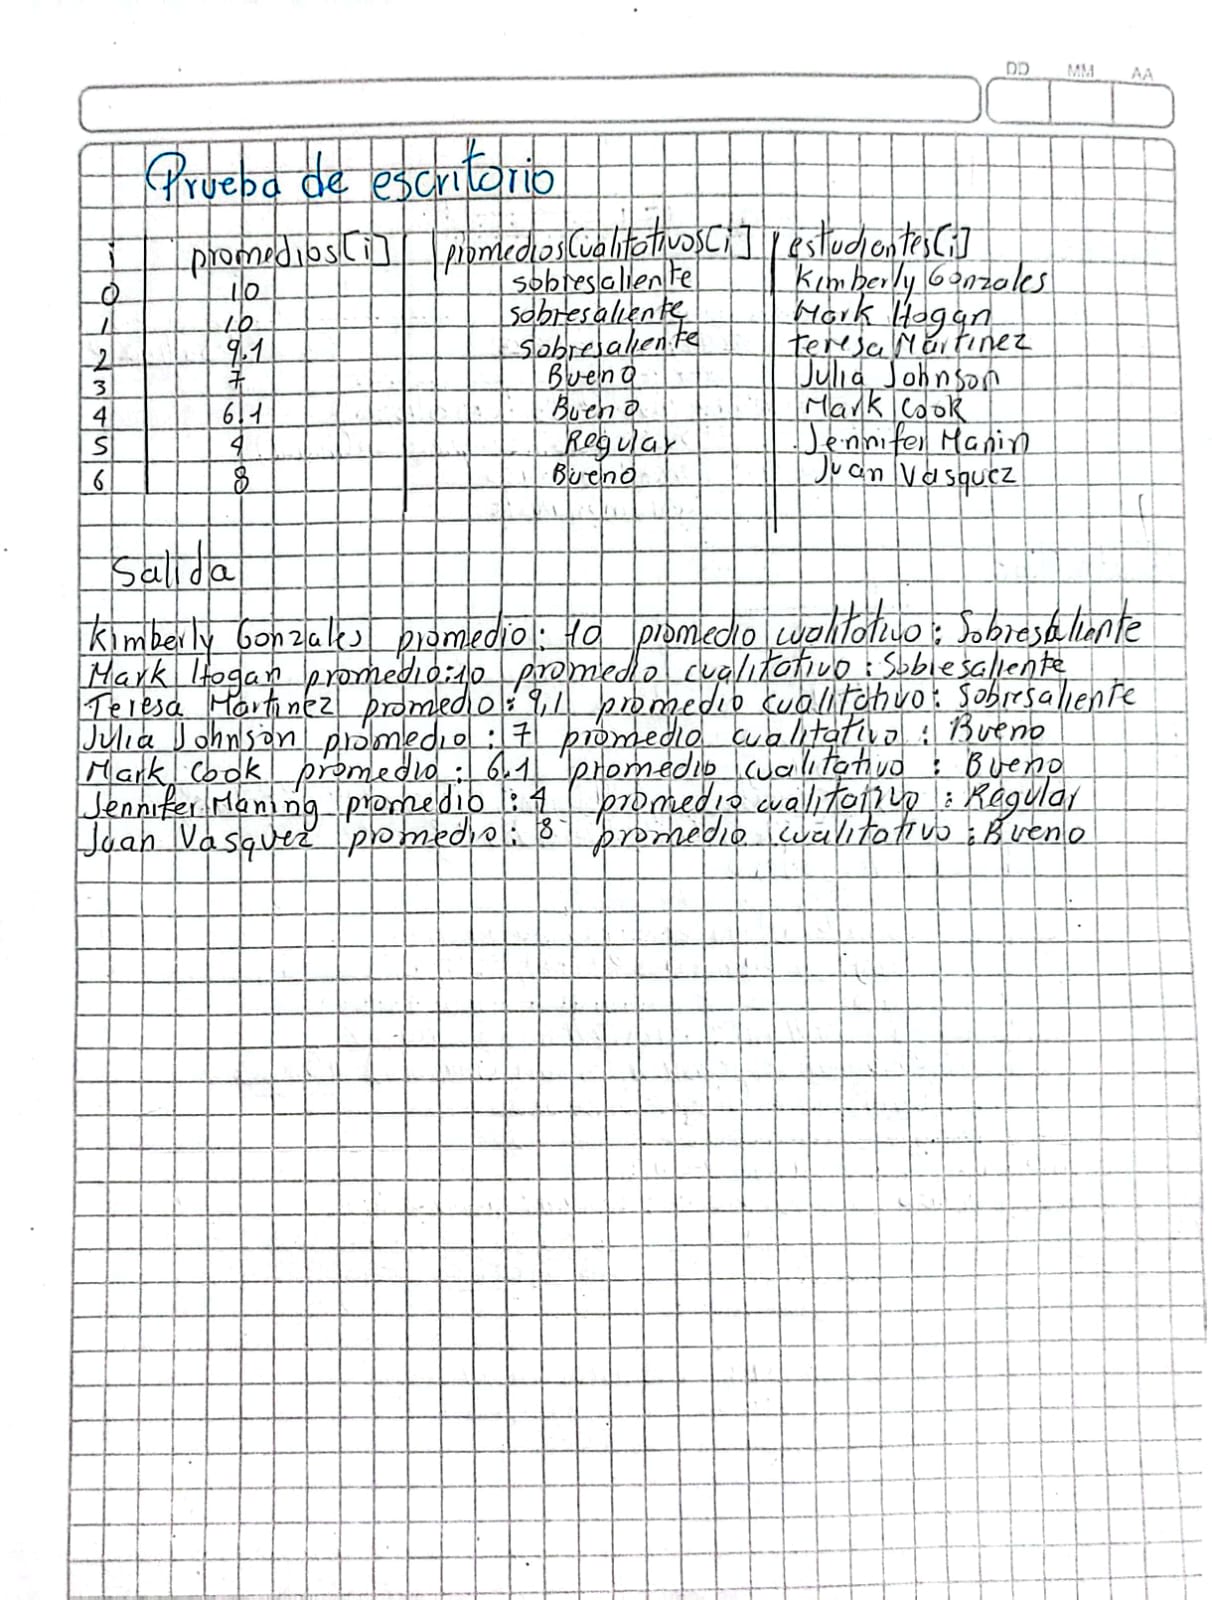 DD MM AA
Prueba de escritorio
i promedios[i] promediosCualitativos[i] estudiantes[i]
0 10 sobresaliente Kimberly Gonzales
1 10 sobresaliente Mark Hogan
2 9.1 sobresaliente teresa Martinez
3 7 Bueno Julia Johnson
4 6.1 Bueno Mark Cook
5 4 Regular Jennifer Manin
6 8 Bueno Juan Vasquez
Salida
Kimberly Gonzales promedio: 10 promedio cualitativo: Sobresaliente
Mark Hogan promedio:10 promedio cualitativo: Sobresaliente
Teresa Martinez promedio: 9,1 promedio cualitativo: Sobresaliente
Julia Johnson promedio: 7 promedio cualitativo: Bueno
Mark Cook promedio: 6.1 promedio cualitativo: Bueno
Jennifer Maning promedio: 4 promedio cualitativo: Regular
Juan Vasquez promedio: 8 promedio cualitativo: Bueno